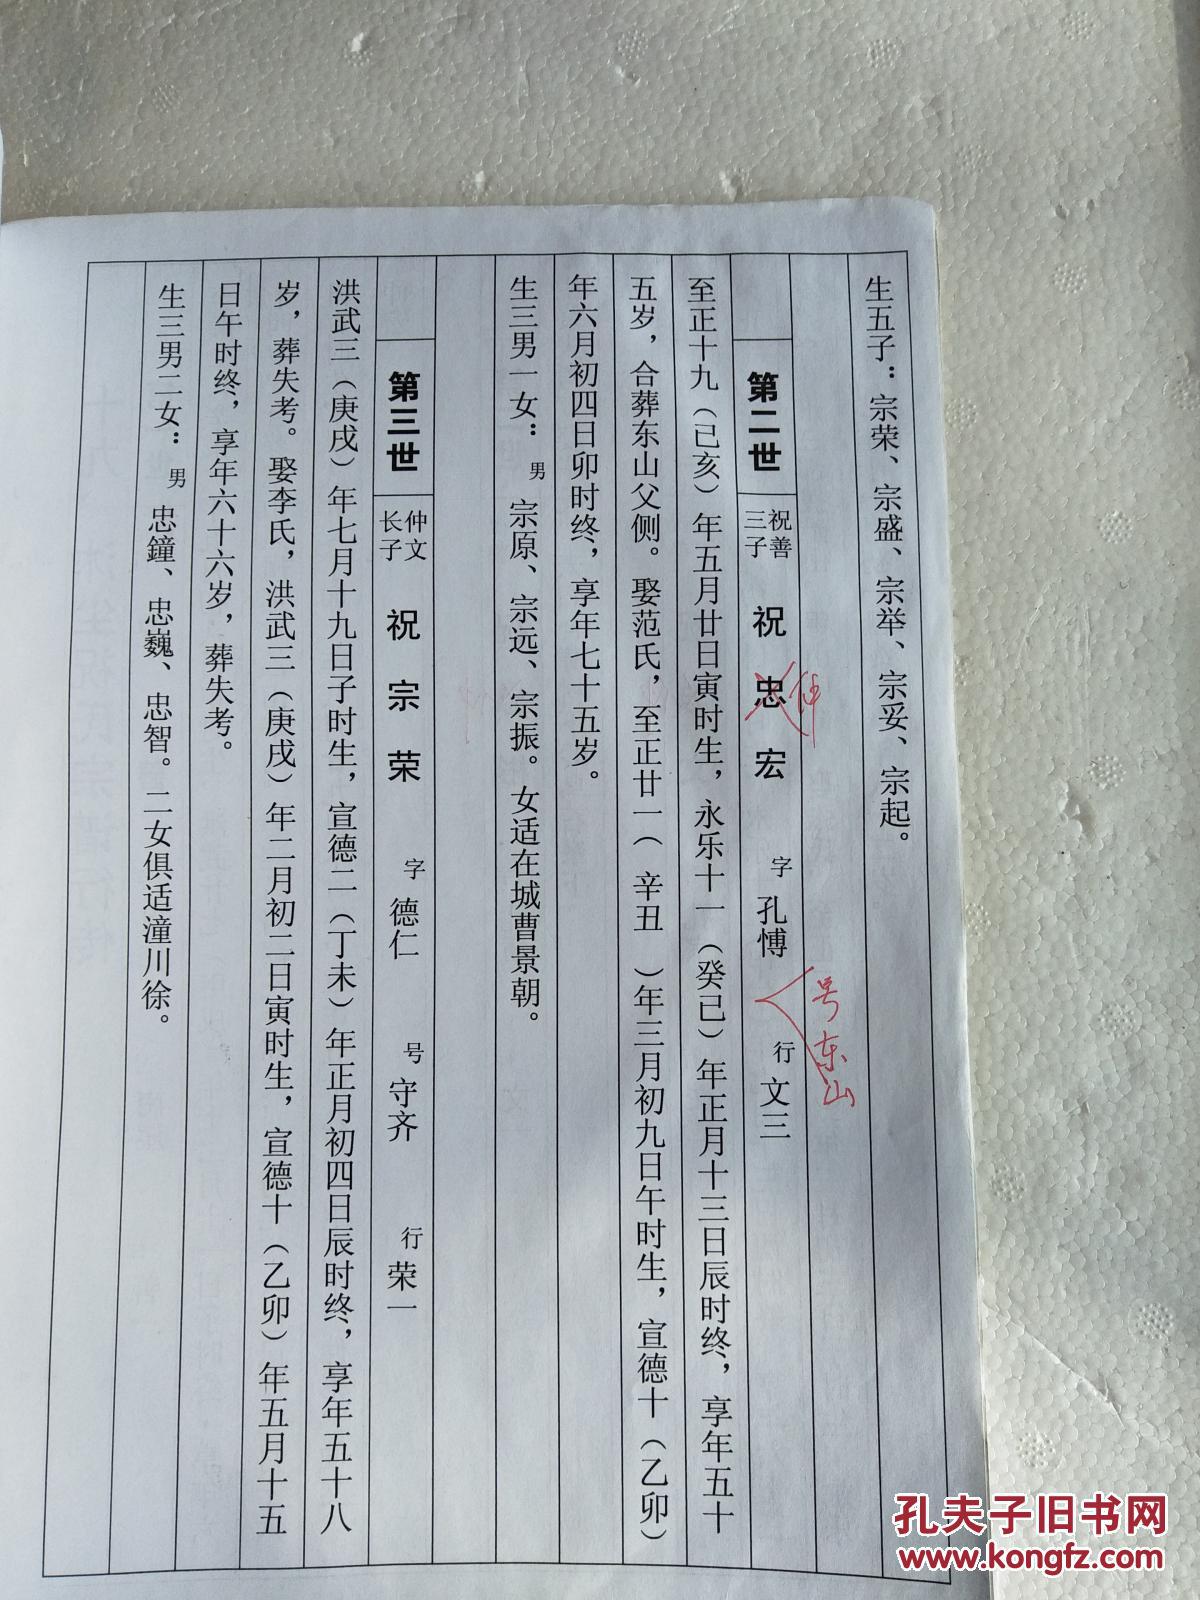 生五子：宗荣、宗盛、宗举、宗妥、宗起。
第二世 祝善三子 祝忠宏 字 孔博 行 文三
仲
号东山
至正十九（己亥）年五月廿日寅时生，永乐十一（癸巳）年正月十三日辰时终，享年五十
五岁，合葬东山父侧。娶范氏，至正廿一（ 辛丑 ）年三月初九日午时生，宣德十（乙卯）
年六月初四日卯时终，享年七十五岁。
生三男一女：男 宗原、宗远、宗振。女适在城曹景朝。
第三世 仲文长子 祝宗荣 字 德仁 号 守齐 行 荣一
洪武三（庚戌）年七月十九日子时生，宣德二（丁未）年正月初四日辰时终，享年五十八
岁，葬失考。娶李氏，洪武三（庚戌）年二月初二日寅时生，宣德十（乙卯）年五月十五
日午时终，享年六十六岁，葬失考。
生三男二女：男 忠鐘、忠巍、忠智。二女俱适潼川徐。
孔夫子旧书网
www.kongfz.com